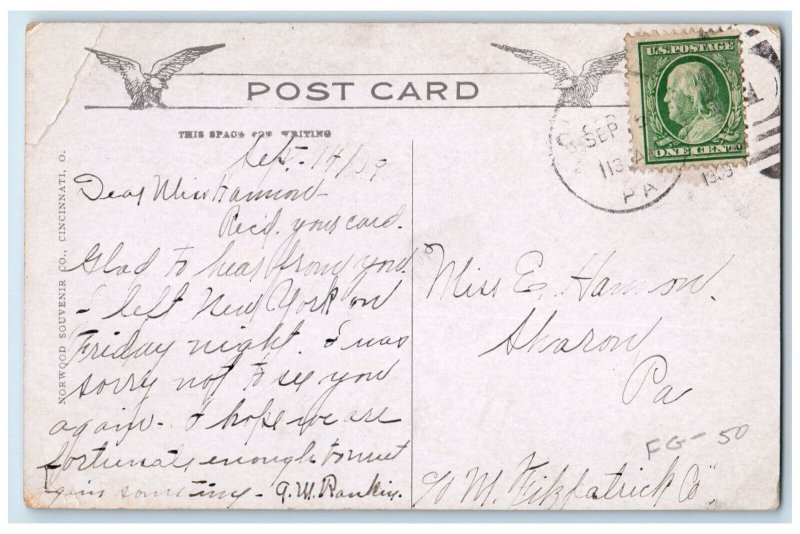 POST CARD
THIS SPACE FOR WRITING
U.S. POSTAGE
ONE CENT
SEP
1130 A
PA
1909
NORWOOD SOUVENIR CO., CINCINNATI, O.
Sept. 14/09
Dear Miss Hannon
Rec'd. your card.
Glad to hear from you.
- I left New York on
Friday night. I was
sorry not to see you
again - I hope we are
fortunate enough to meet
again sometime - A.M. Rankin.
Miss E. Hannon.
Sharon
Pa
FG-50
c/o M. Fitzpatrick Co